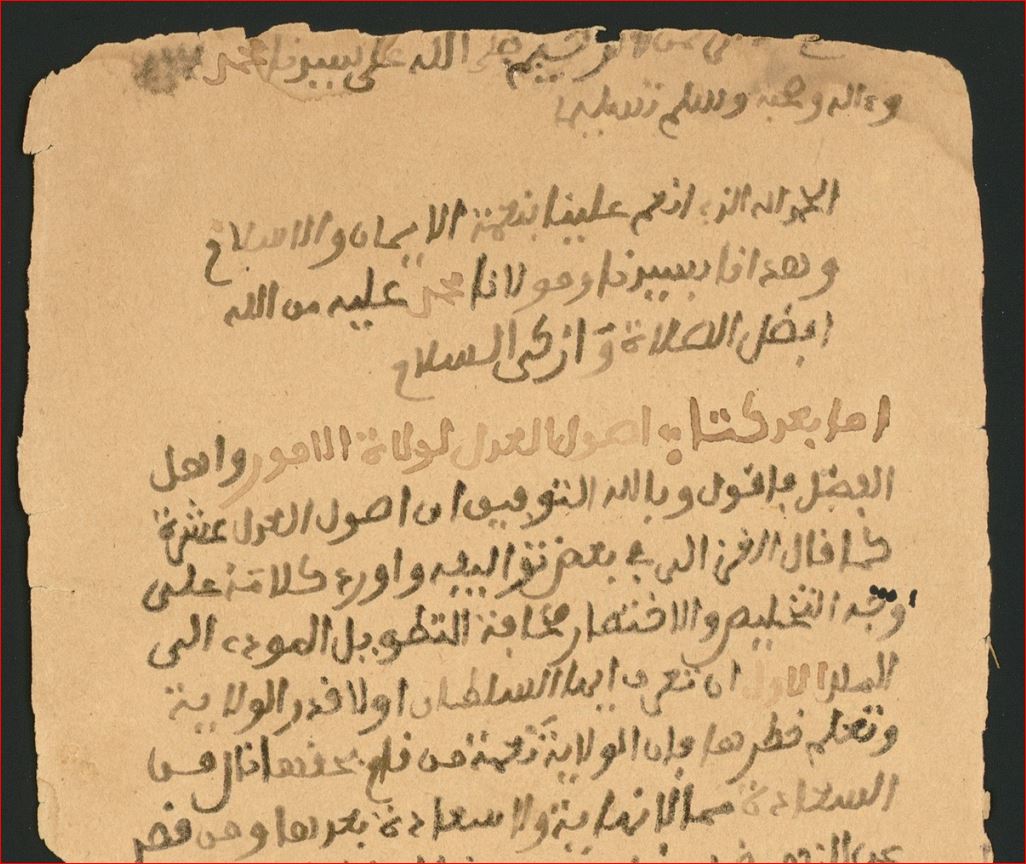 الرحمن الرحيم صلى الله على سيدنا محمد
وءاله وصحبه وسلم تسليما
الحمد لله الذي انعم علينا بنعمة الايمان والاسلام
وهدانا بسيدنا ومولانا محمد عليه من الله
افضل الصلاة وازكى السلام
اما بعد كتاب اصول العدل لولاة الامور واهل
الفضل فاقول وبالله التوفيق ان اصول العدل عشرة
كما قال الغزالى في بعض تواليفه واورد كلامه على
وجه التخليص والاختصار مخافة التطويل المودي الى
الملل الاول ان تعرف ايها السلطان اولا قدر الولاية
وتعلم خطرها فان الولاية نعمة من قام بحقها نال من
السعادة مما لا نهاية ولا سعادة بعدها ومن قصر
عن